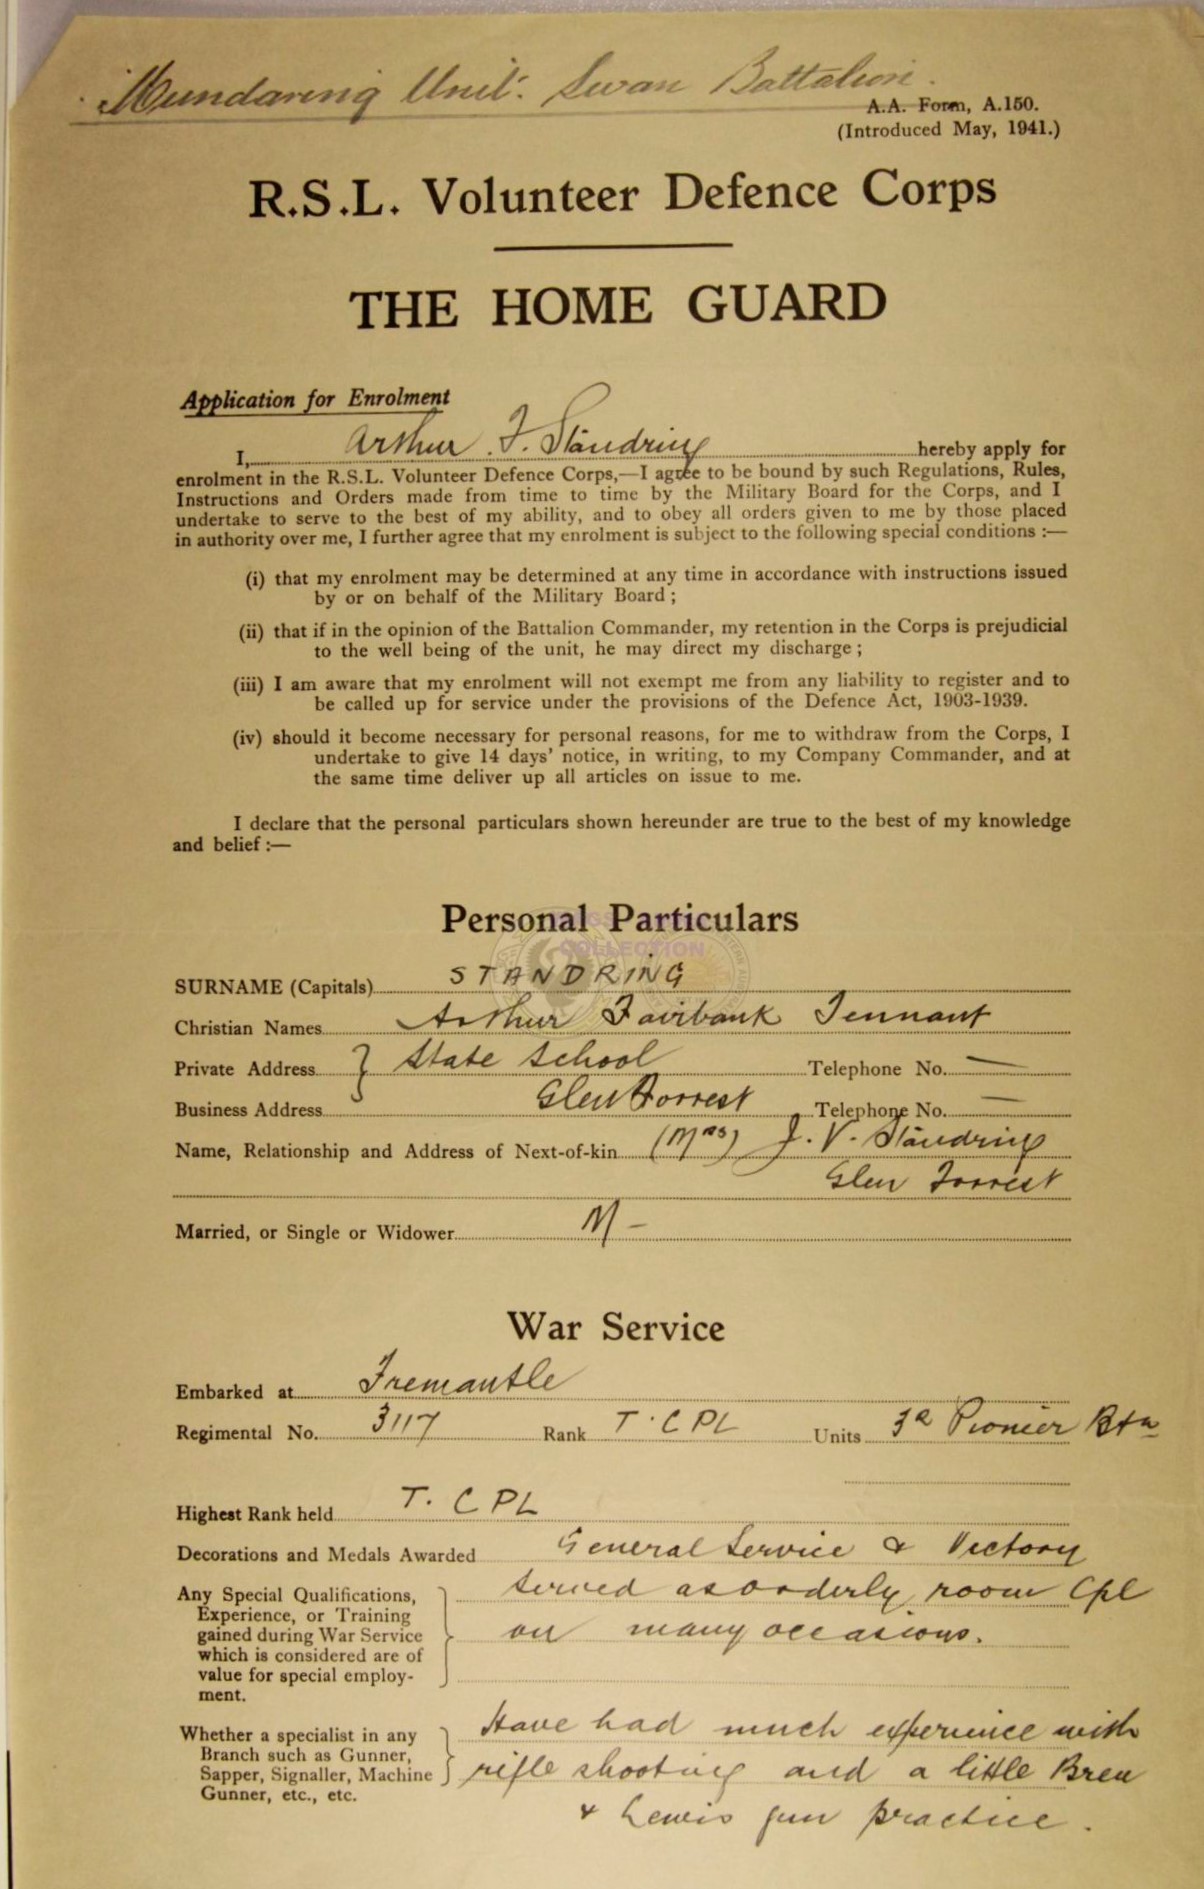 Mundaring Unit: Swan Battalion.
A.A. Form, A.150.
(Introduced May, 1941.)
R.S.L. Volunteer Defence Corps
THE HOME GUARD
Application for Enrolment
I, Arthur F. Standring hereby apply for
enrolment in the R.S.L. Volunteer Defence Corps,—I agree to be bound by such Regulations, Rules,
Instructions and Orders made from time to time by the Military Board for the Corps, and I
undertake to serve to the best of my ability, and to obey all orders given to me by those placed
in authority over me, I further agree that my enrolment is subject to the following special conditions :—
(i) that my enrolment may be determined at any time in accordance with instructions issued
by or on behalf of the Military Board ;
(ii) that if in the opinion of the Battalion Commander, my retention in the Corps is prejudicial
to the well being of the unit, he may direct my discharge ;
(iii) I am aware that my enrolment will not exempt me from any liability to register and to
be called up for service under the provisions of the Defence Act, 1903-1939.
(iv) should it become necessary for personal reasons, for me to withdraw from the Corps, I
undertake to give 14 days' notice, in writing, to my Company Commander, and at
the same time deliver up all articles on issue to me.
I declare that the personal particulars shown hereunder are true to the best of my knowledge
and belief :—
Personal Particulars
COLLECTION
SURNAME (Capitals) STANDRING
Christian Names Arthur Fairbank Tennant
Private Address } State School Telephone No. —
Business Address Glen Forrest Telephone No. —
Name, Relationship and Address of Next-of-kin (Mrs) J. V. Standring
Glen Forrest
Married, or Single or Widower M -
War Service
Embarked at Fremantle
Regimental No. 3117 Rank T. CPL Units 3rd Pionier Btn
Highest Rank held T. CPL
Decorations and Medals Awarded General Service & Victory
Any Special Qualifications, served as orderly room Cpl
Experience, or Training
gained during War Service on many occasions.
which is considered are of
value for special employ-
ment.
Whether a specialist in any Have had much experience with
Branch such as Gunner,
Sapper, Signaller, Machine rifle shooting and a little Bren
Gunner, etc., etc.
& Lewis gun practice.